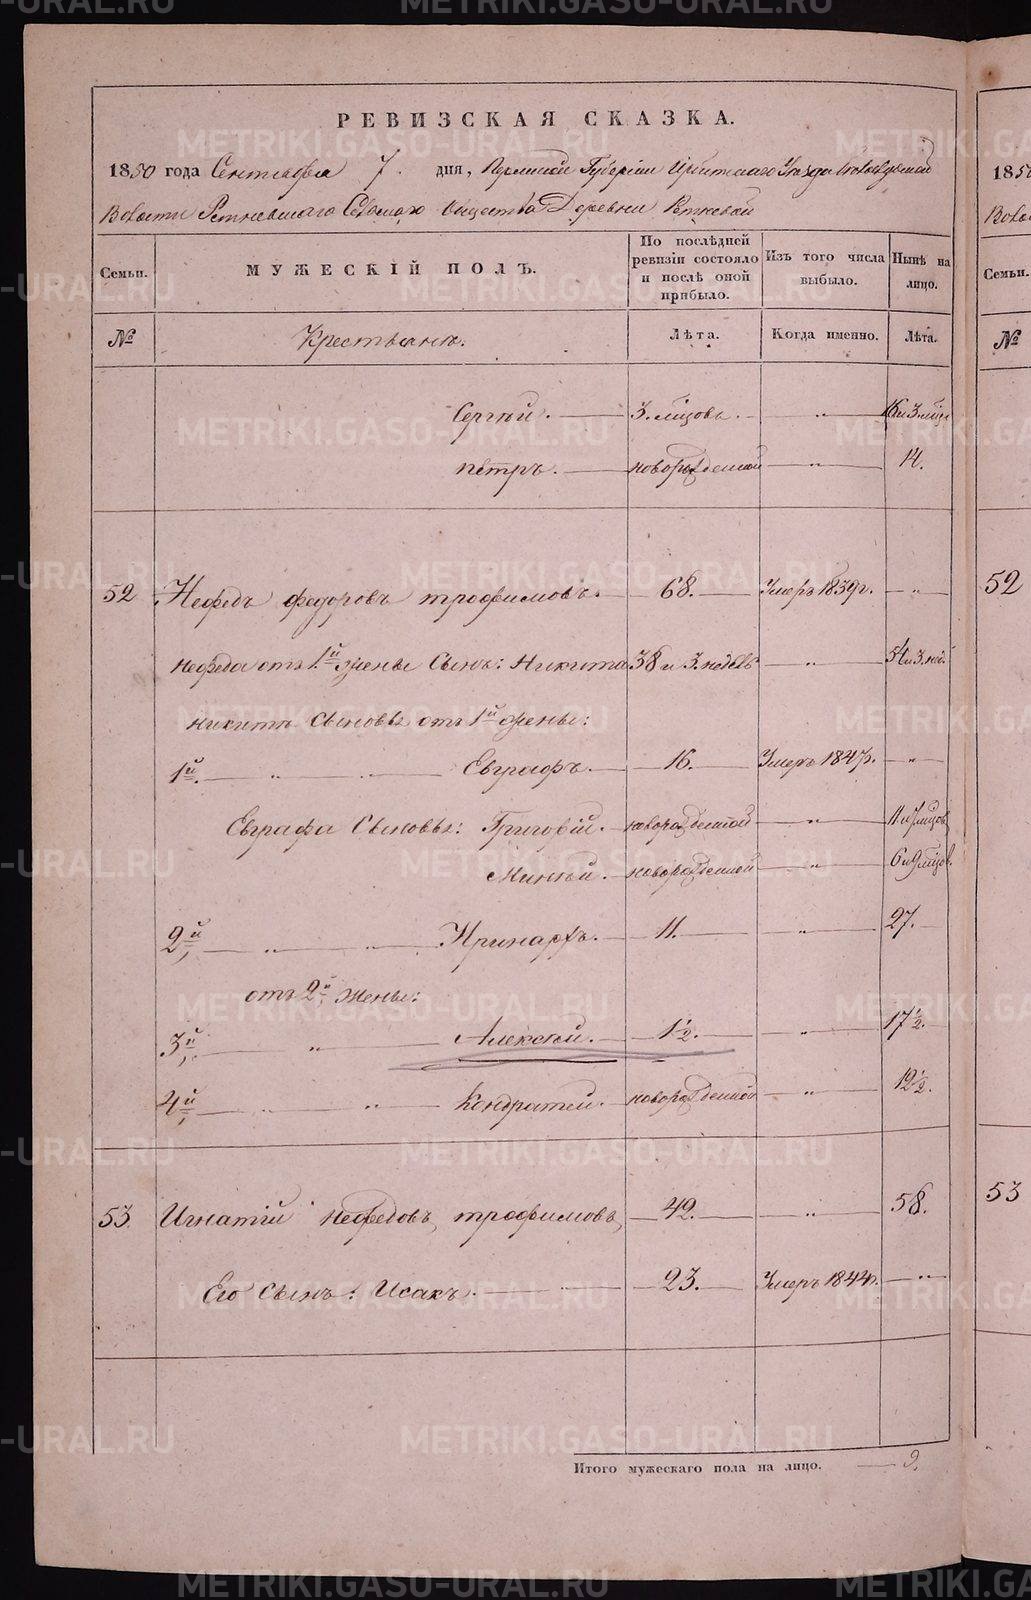 METRIKI.GASO-URAL.RU
РЕВИЗСКАЯ СКАЗКА.
1850 года Сентября 7. дня, Пермской Губернiи Ирбитскаго Уѣзда
Волости Ретневскаго Сельскаго Общества Деревни Ретневой
Семьи. МУЖЕСКIЙ ПОЛЪ. По послѣдней ревизiи состояло и послѣ оной прибыло. Изъ того числа выбыло. Нынѣ на лицо.
№ Крестьяне. Лѣта. Когда именно. Лѣта.
Сергѣй. 3. мѣсцовъ. „ 16 и 3. мѣсц
петръ. новорожденной „ 14.
52 Нефедъ федоровъ трофимовъ. 68. Умеръ 1839г. „
нефеда отъ 1й жены Сынъ: Никита 38 и 3. недѣль „ 54 и 3. нед.
никиты Сыновья отъ 1й жены:
1й. „ „ Евграфъ. 16. Умеръ 1847г. „
Евграфа Сыновья: Григорiй. новорожденной „ 11. и 7 мѣсцов
Минѣй. новорожденной „ 6 и 9 мѣсцов.
2й „ „ Иринархъ. 11. „ 27.
отъ 2й жены:
3й „ Алексѣй. 1½. „ 17½.
4й „ „ Кондратей. новорожденной „ 12½.
53. Игнатiй нефедовъ трофимовъ, 42. „ 58.
Его Сынъ: Исакъ. 23. Умеръ 1844г. „
Итого мужескаго пола на лицо. 9.
185
Воло
Семьи.
№
52
53